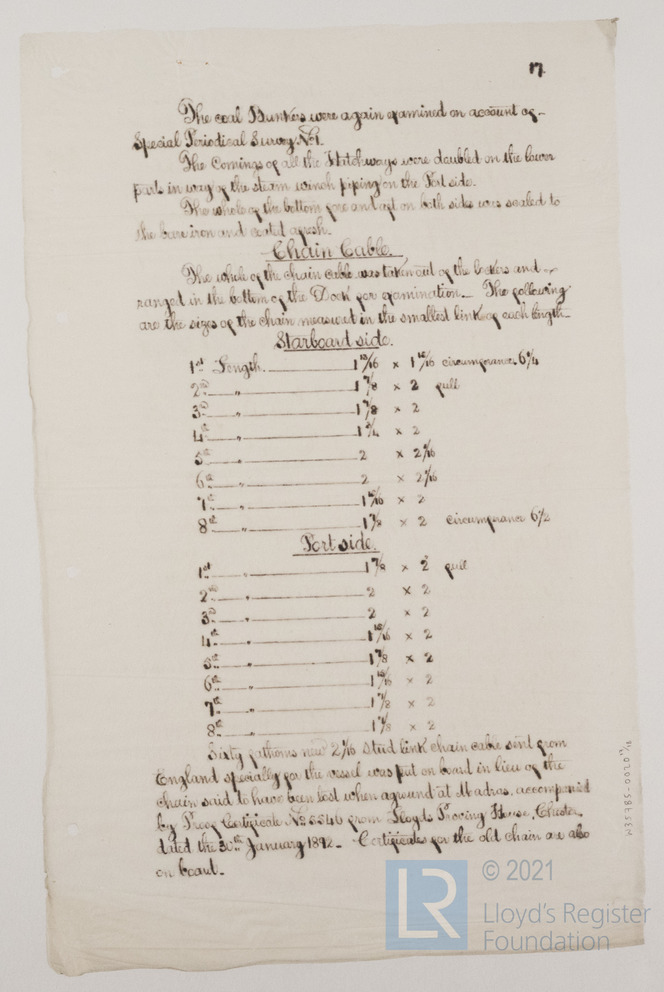 17.
The coal Bunkers were again examined on account of
Special Periodical Survey No1.
The Comings of all the Hatchways were doubled on the lower
parts in way of the steam winch piping on the Port side.
The whole of the bottom fore and aft on both sides was scaled to
the bare iron and coated afresh.
Chain Cable.
The whole of the chain cable was taken out of the lockers and
ranged in the bottom of the Dock for examination. The following
are the sizes of the chain measured in the smallest link of each length.
Starboard side.
1st Length. 1 15/16 x 1 15/16 circumferance 6 1/4
2nd " 1 7/8 x 2 full
3rd " 1 7/8 x 2
4th " 1 3/4 x 2
5th " 2 x 2 1/16
6th " 2 x 2 1/16
7th " 1 15/16 x 2
8th " 1 7/8 x 2 circumferance 6 1/2
Port side.
1st " 1 7/8 x 2 full
2nd " 2 x 2
3rd " 2 x 2
4th " 1 15/16 x 2
5th " 1 7/8 x 2
6th " 1 15/16 x 2
7th " 1 7/8 x 2
8th " 1 7/8 x 2
Sixty fathoms new 2 1/16 Stud link chain cable sent from
England specially for the vessel was put on board in lieu of the
chain said to have been lost when aground at Madras, accompanied
by Proof Certificate No 5546 from Lloyds Proving House, Chester
dated the 30th January 1892. Certificates for the old chain are also
on board.
LR
© 2021
Lloyd's Register
Foundation